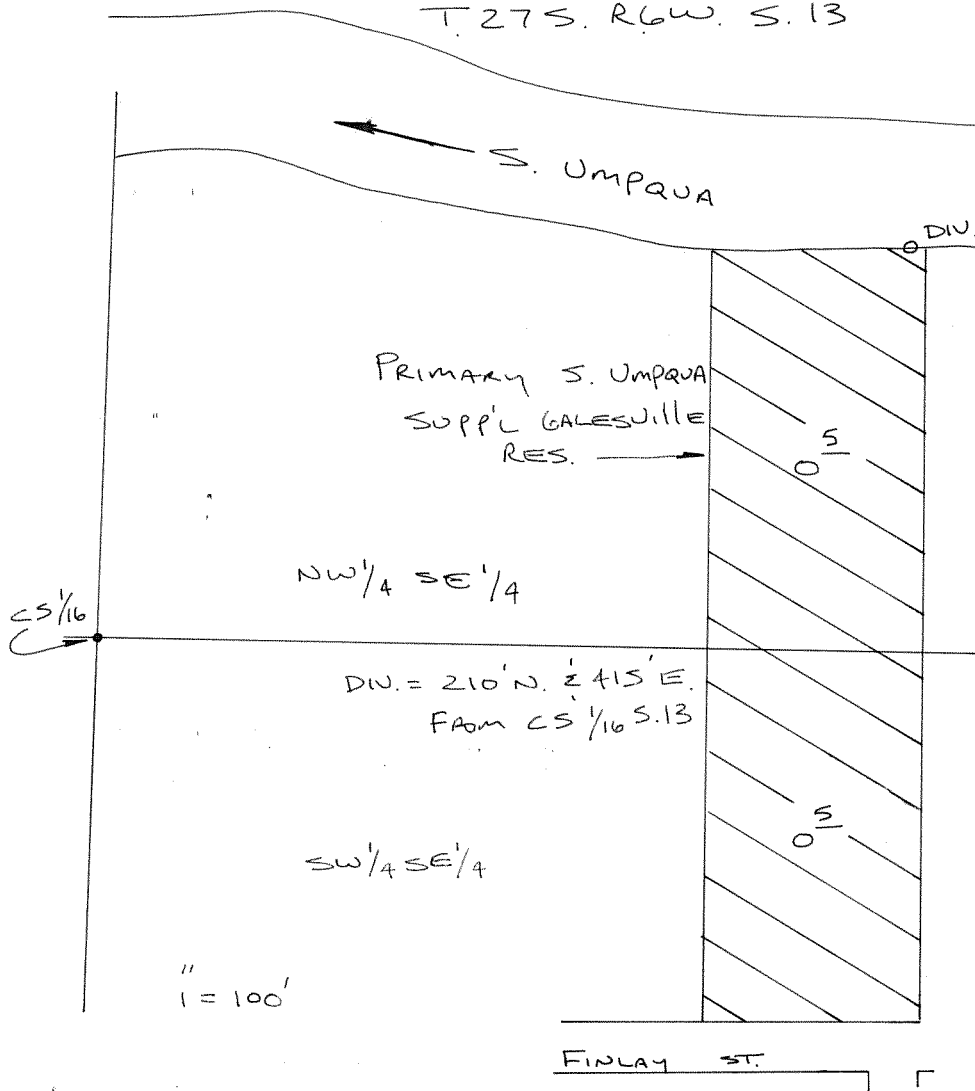 T. 27 S. R6W. S. 13
S. UMPQUA
DIV.
PRIMARY S. UMPQUA
SUPP'L GALESVILLE
RES.
0.5
NW 1/4 SE 1/4
CS 1/16
DIV. = 210' N. & 415' E.
FROM CS 1/16 S.13
0.5
SW 1/4 SE 1/4
1" = 100'
FINLAY ST.